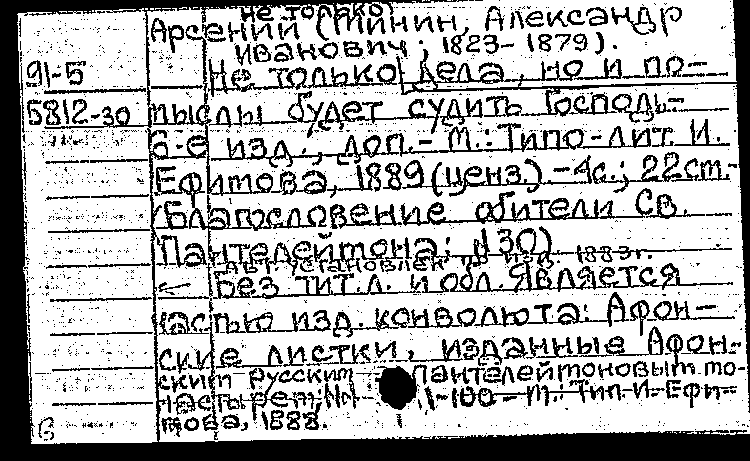 не только
Арсений (Минин, Александр
Иванович; 1823-1879).
91-5 Не только дела, но и по-
5812-30 мыслы будет судить Господь.-
6-е изд., доп.- М.: Типо-лит. И.
Ефимова, 1889 (ценз.).-4с.; 22см.-
(Благословение обители Св.
Пантелеймона; 130)
Авт. установлен по изд. 1883г.
Без тит.л. и обл. Является
частью изд. конволюта: Афон-
ские листки, изданные Афон-
ским Русским Пантелеймоновым мо-
настырем, №1 1-100 - М.: Тип. И. Ефи-
мова, 1888.